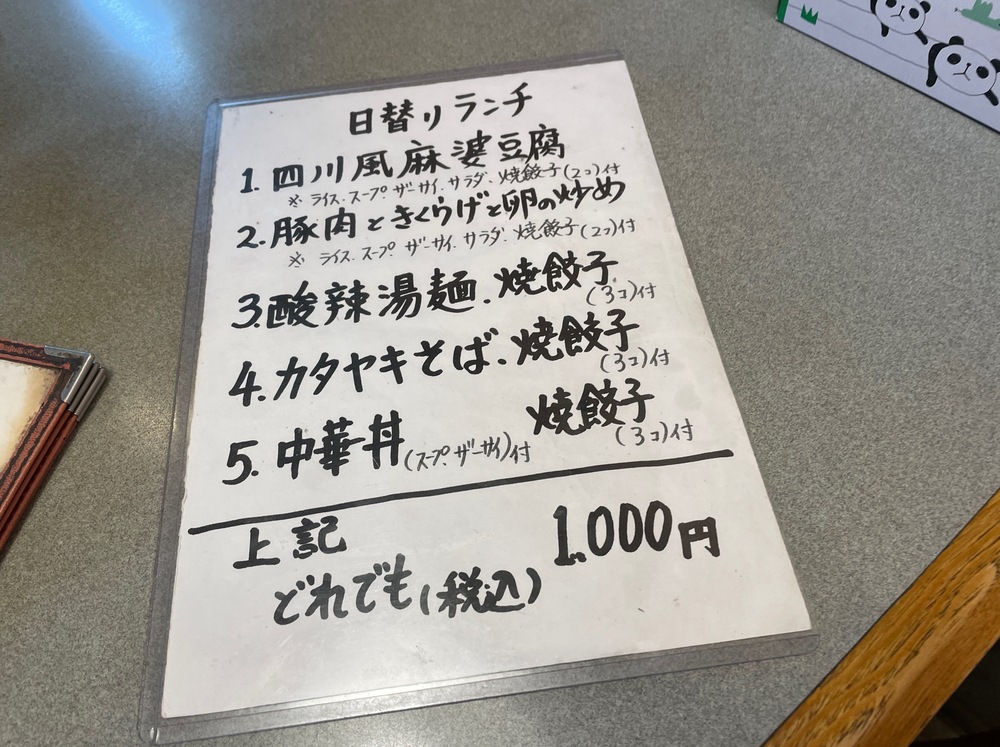 日替りランチ
1. 四川風麻婆豆腐
※ ライス.スープ.ザーサイ.サラダ.焼餃子(2コ)付
2. 豚肉ときくらげと卵の炒め
※ ライス.スープ.ザーサイ.サラダ.焼餃子(2コ)付
3. 酸辣湯麺.焼餃子
(3コ)付
4. カタヤキそば.焼餃子
(3コ)付
5. 中華丼(スープ.ザーサイ)付 焼餃子
(3コ)付
上記 1.000円
どれでも(税込)